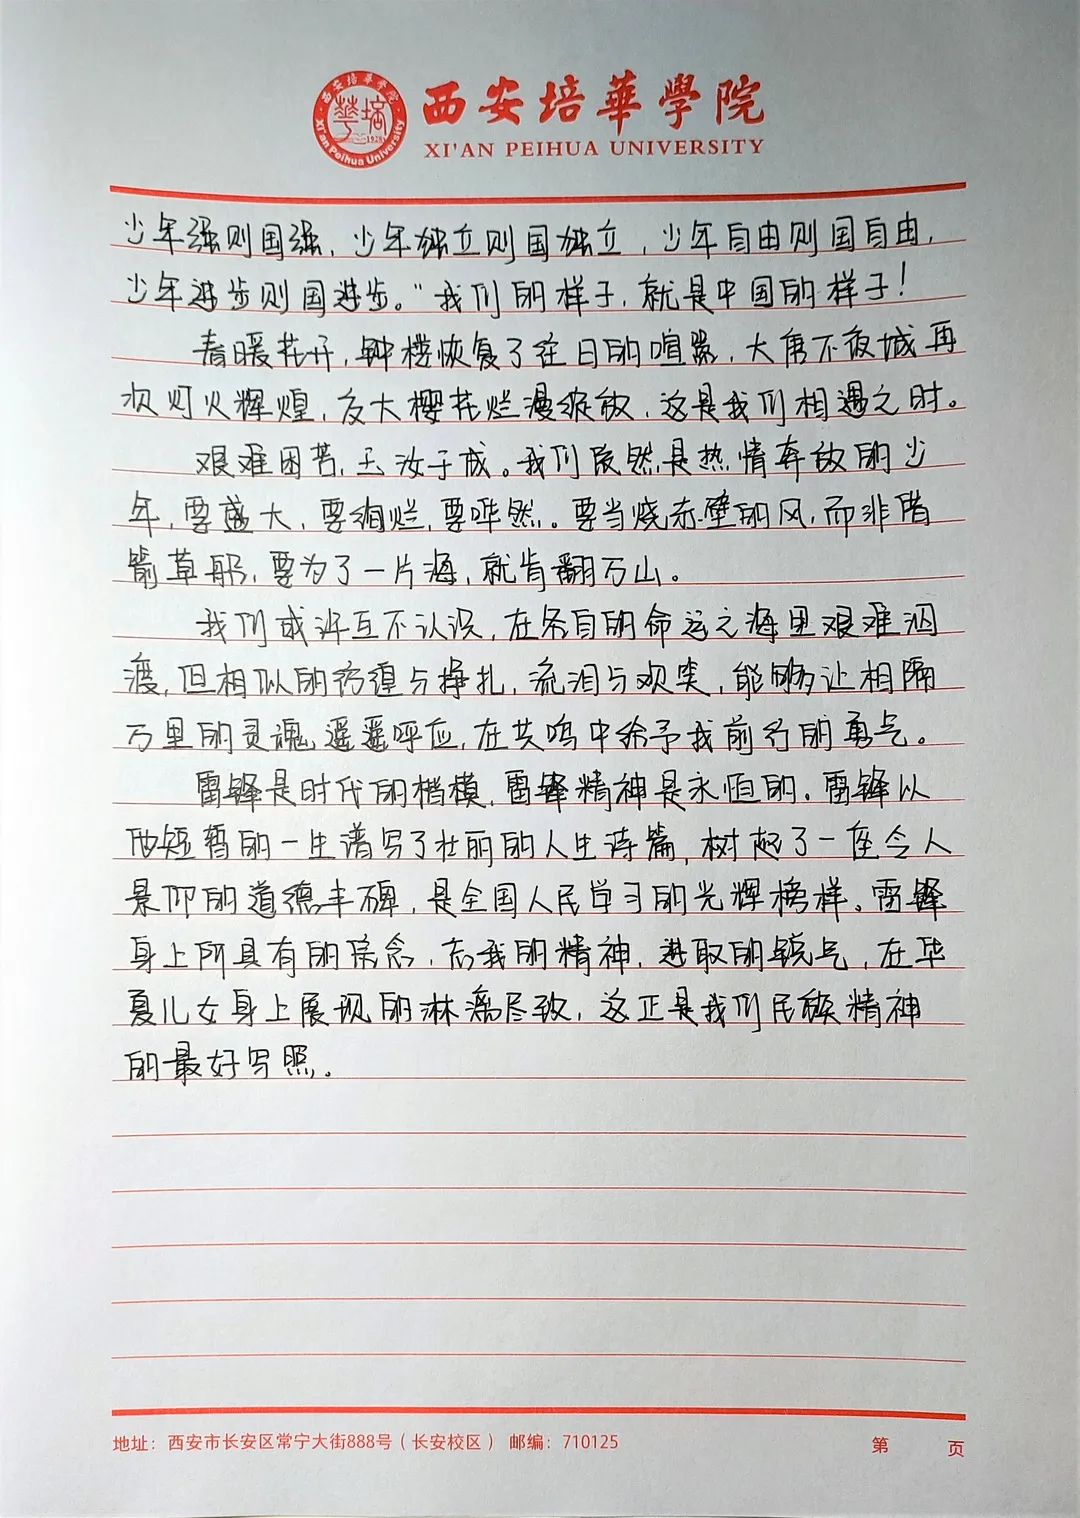 西安培華學院
XI'AN PEIHUA UNIVERSITY
西安培華學院
Xi'an Peihua University
1928
少年强则国强，少年独立则国独立，少年自由则国自由，
少年进步则国进步。"我们的样子，就是中国的样子！
春暖花开，钟楼恢复了往日的喧嚣，大唐不夜城再
次灯火辉煌，友大樱花烂漫绽放，这是我们相遇之时。
艰难困苦，玉汝于成。我们既然是热情奔放的少
年，要盛大，要绚烂，要哗然。要当烧赤壁的风，而非借
箭草船，要为了一片海，就肯翻万山。
我们或许互不认识，在各自的命运之海里艰难泅
渡，但相似的彷徨与挣扎，流泪与欢笑，能够让相隔
万里的灵魂遥遥呼应，在共鸣中给予我前行的勇气。
雷锋是时代的楷模，雷锋精神是永恒的。雷锋以
他短暂的一生谱写了壮丽的人生诗篇，树起了一座令人
景仰的道德丰碑，是全国人民学习的光辉榜样。雷锋
身上所具有的信念，忘我的精神，进取的锐气，在华
夏儿女身上展现的淋漓尽致，这正是我们民族精神
的最好写照。
地址：西安市长安区常宁大街888号（长安校区） 邮编：710125 第 页